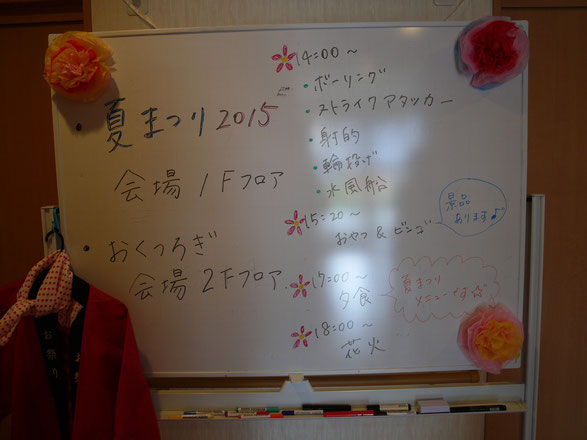 ・夏まつり2015
会場 1Fフロア
・おくつろぎ
会場 2Fフロア
14:00～
・ボーリング
・ストライクアタッカー
・射的
・輪投げ
・水風船
15:20～
おやつ&ビンゴ
景品
あります♪
17:00～
夕食
夏まつり
メニューです☆
18:00～
花火
お祭り